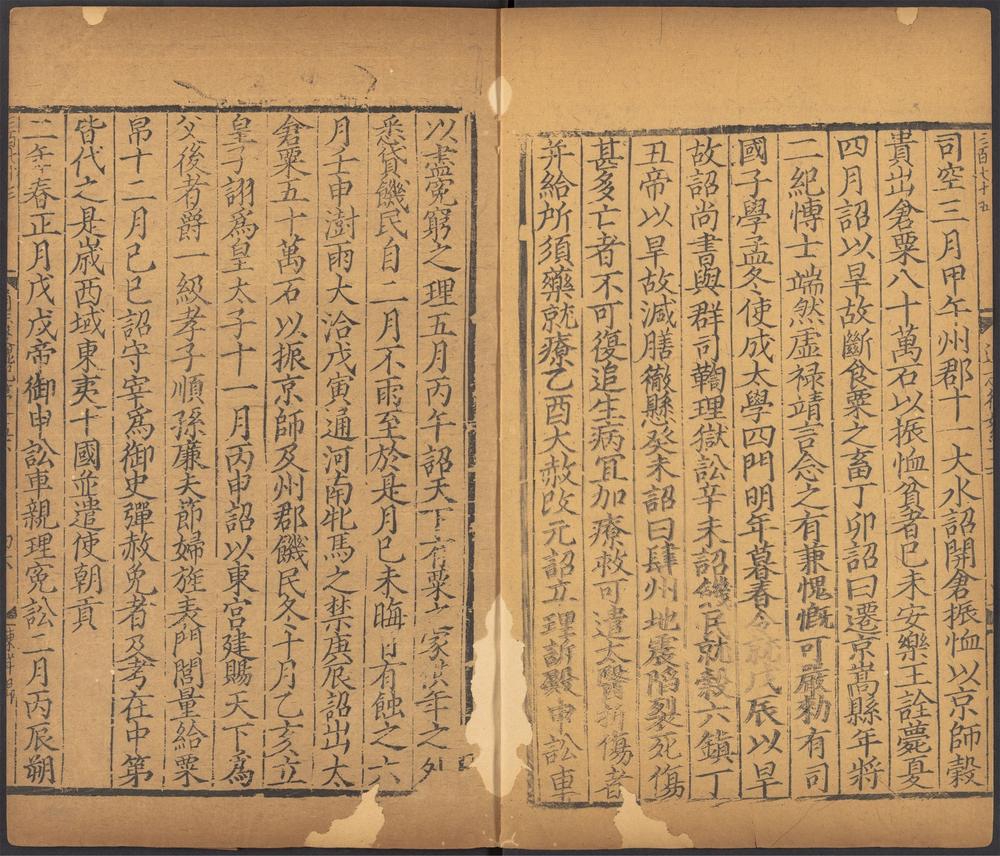 三百七十五
司空三月甲午州郡十一大水詔開倉振恤以京師穀
貴出倉粟八十萬石以振恤貧者己未安樂王詮薨夏
四月詔以旱故斷食粟之畜丁卯詔曰遷京嵩縣年將
二紀愽士端然虛禄靖言念之有兼愧慨可嚴勑有司
國子學孟冬使成太學四門明年暮春令就戊辰以旱
故詔尚書與群司鞫理獄訟辛未詔饑民就穀六鎮丁
丑帝以旱故減膳徹懸癸未詔曰肆州地震陷裂死傷
甚多亡者不可復追生病冝加療救可遣太醫折傷者
并給所須藥就療乙酉大赦改元詔立理訴殿申訟車
以盡冤窮之理五月丙午詔天下有粟之家供年之外
悉貸饑民自二月不雨至於是月己未晦日有蝕之六
月壬申澍雨大洽戊寅通河南牝馬之禁庚辰詔出太
倉粟五十萬石以振京師及州郡饑民冬十月乙亥立
皇子詡爲皇太子十一月丙申詔以東宫建賜天下爲
父後者爵一級孝子順孫廉夫節婦旌表門閭量給粟
帛十二月己巳詔守宰爲御史彈赦免者及考在中第
皆代之是歲西域東夷十國並遣使朝貢
二年春正月戊戌帝御申訟車親理冤訟二月丙辰朔